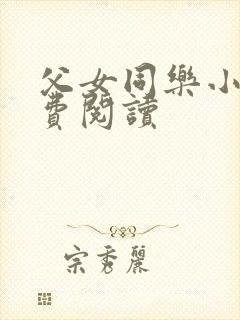 父女同樂小
費閱讀
宗秀麗